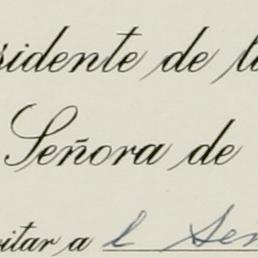 sidente de la
Señora de
vitar a l Señ